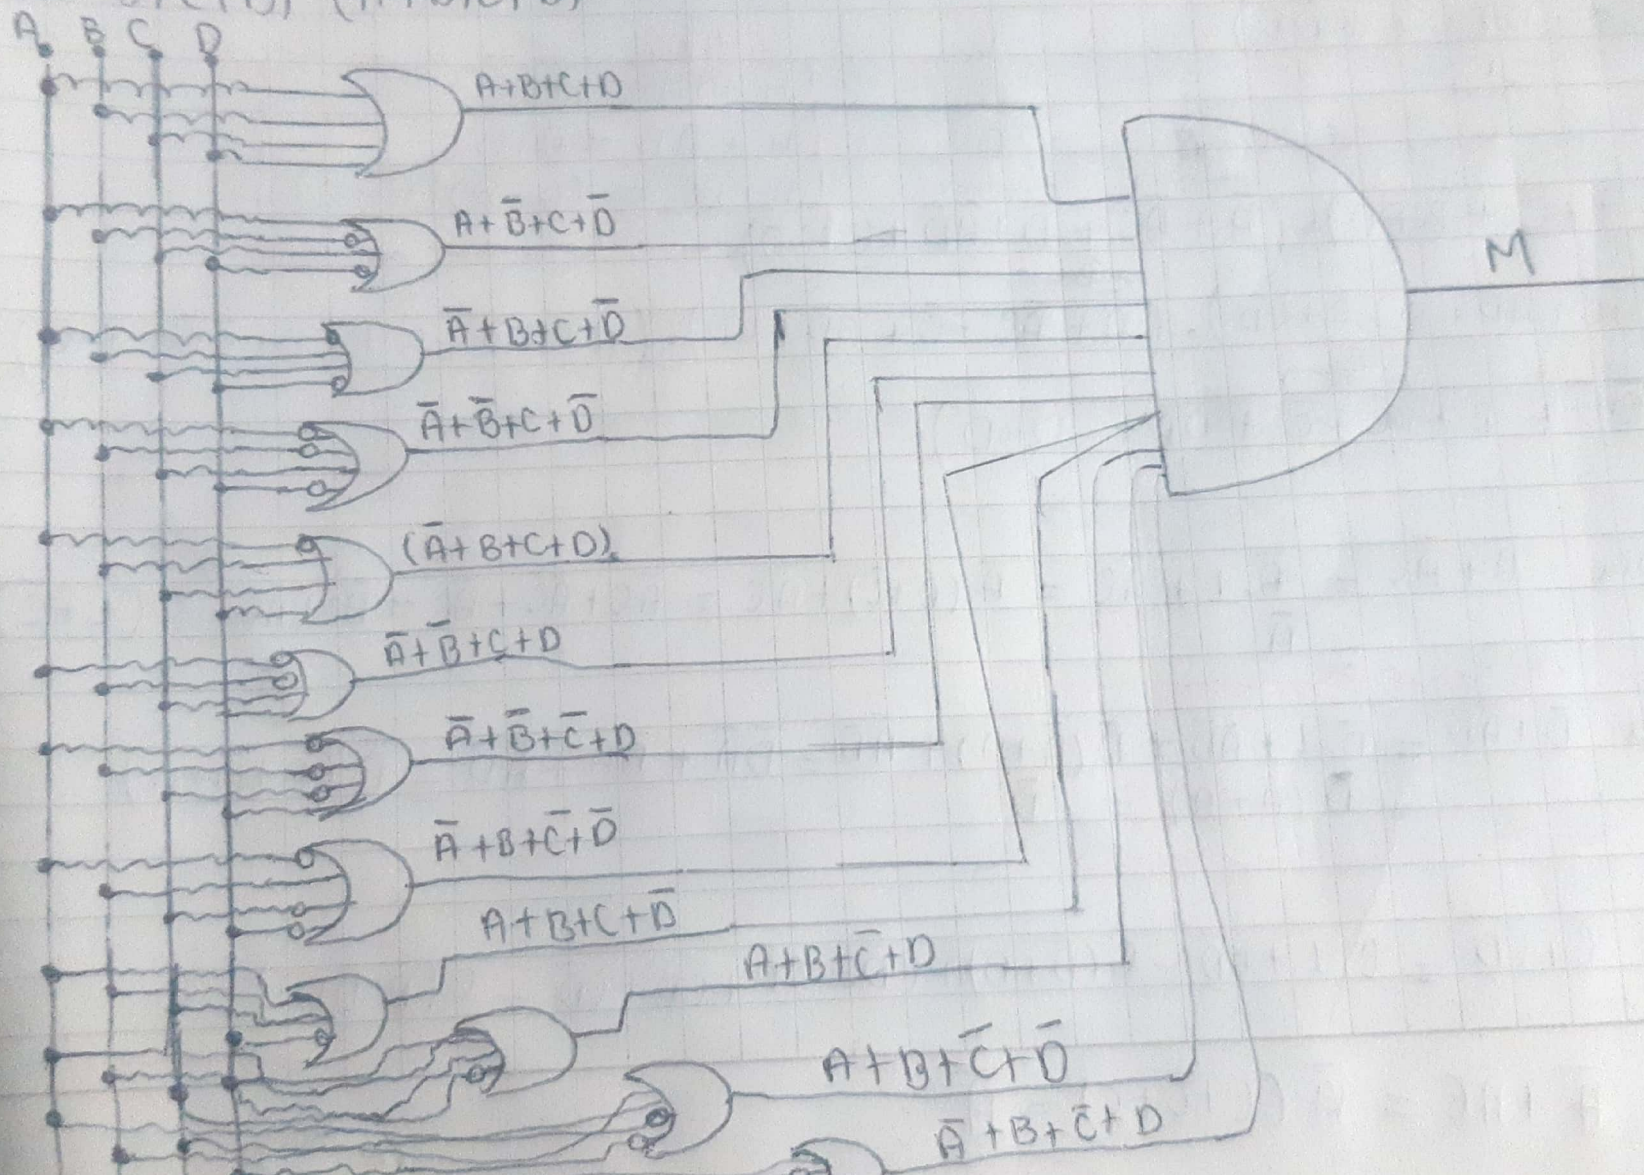 A B C D
A+B+C+D
A+B̅+C+D̅
M
A̅+B+C+D̅
A̅+B̅+C+D̅
(A̅+B+C+D)
A̅+B̅+C+D
A̅+B̅+C̅+D
A̅+B+C̅+D̅
A+B+C+D̅
A+B+C̅+D
A+B+C̅+D̅
A̅+B+C̅+D